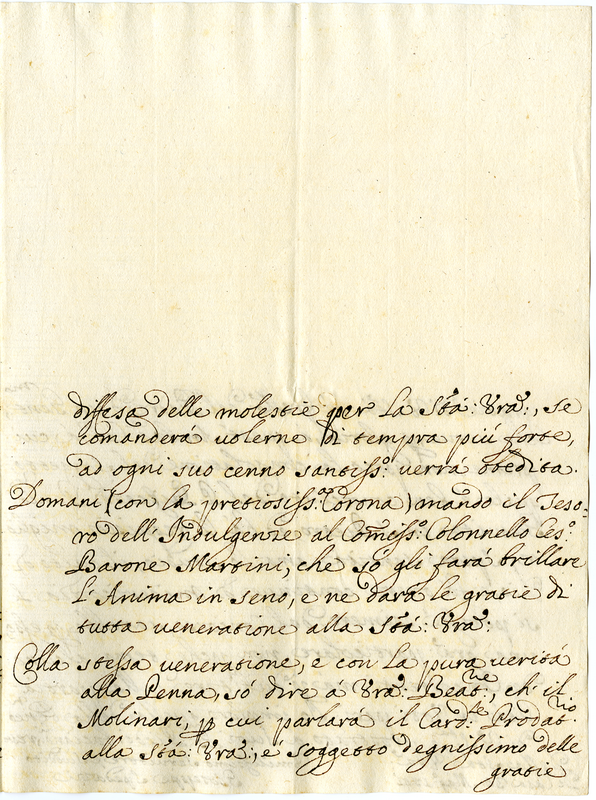 diffesa delle molestie per La Stá: Vrã:, se
comanderá uolerne di tempra piú forte,
ad ogni suo cenno santiss.º: verrá obedita.
Domani (con la pretiosiss:ª Corona) mando il Teso=
ro dell'Indulgenze al Com̃iss:º Colonnello Ces:º
Barone Martini, che só gli fará brillare
L'Anima in seno, e ne dará le gratie di
tutta ueneratione alla Stá: Vrã:
Colla stessa ueneratione, e con La pura veritá
alla Penna, só dire á Vrã: Beat:ne, ch'il
Molinari, p cui parlará il Card:le Prodat:rio
alla Stá: Vrã:, é soggetto degnissimo delle
gratie